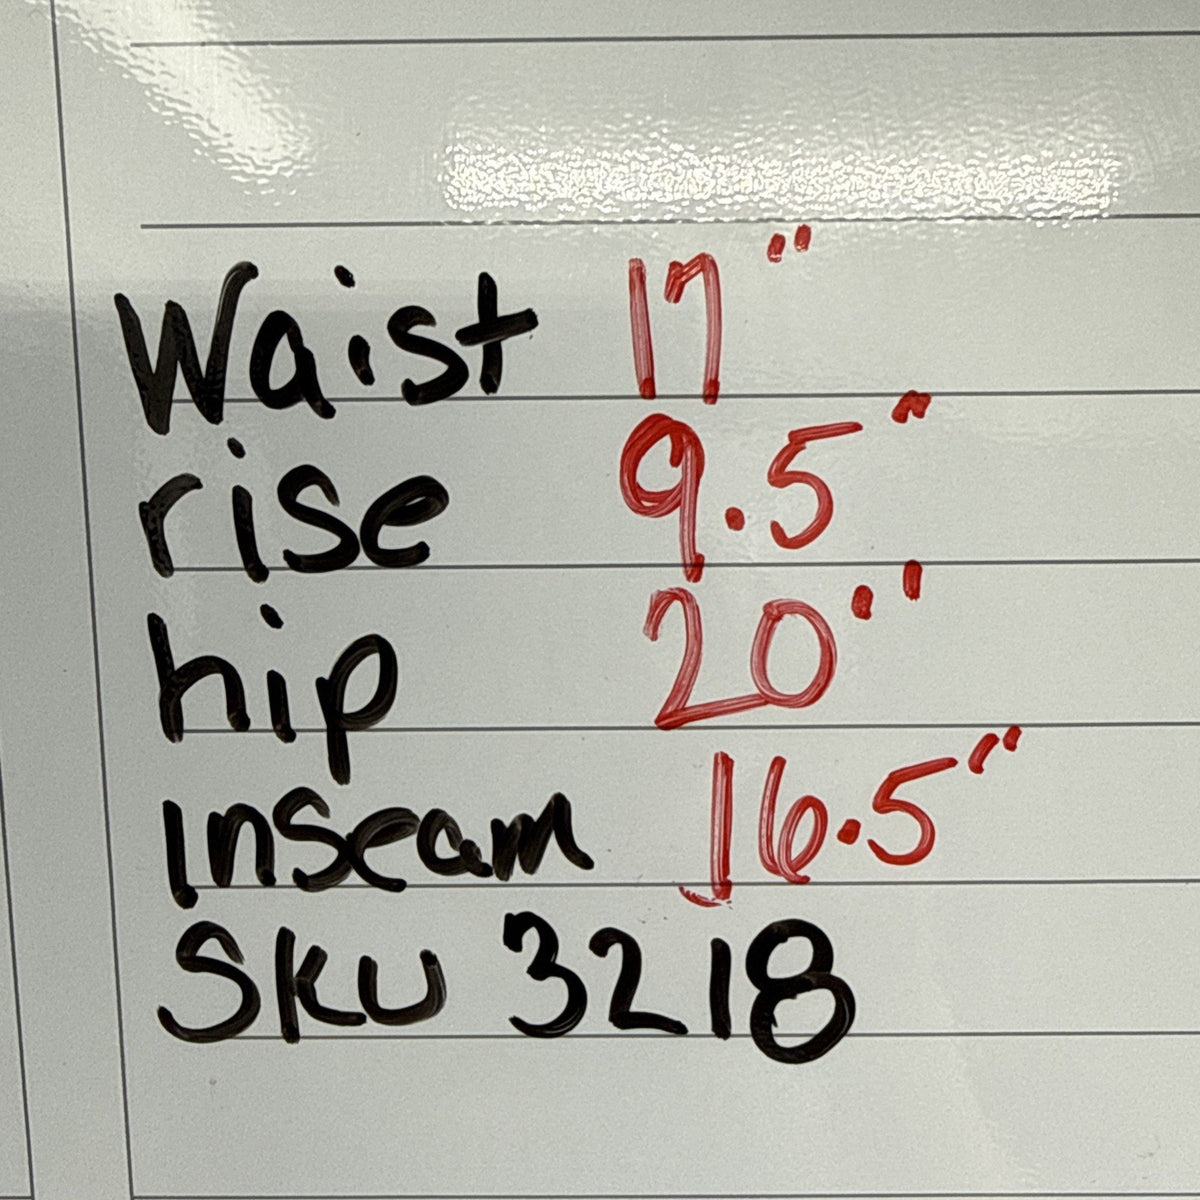 Waist 17"
rise 9.5"
hip 20"
Inseam 16.5"
SKU 3218